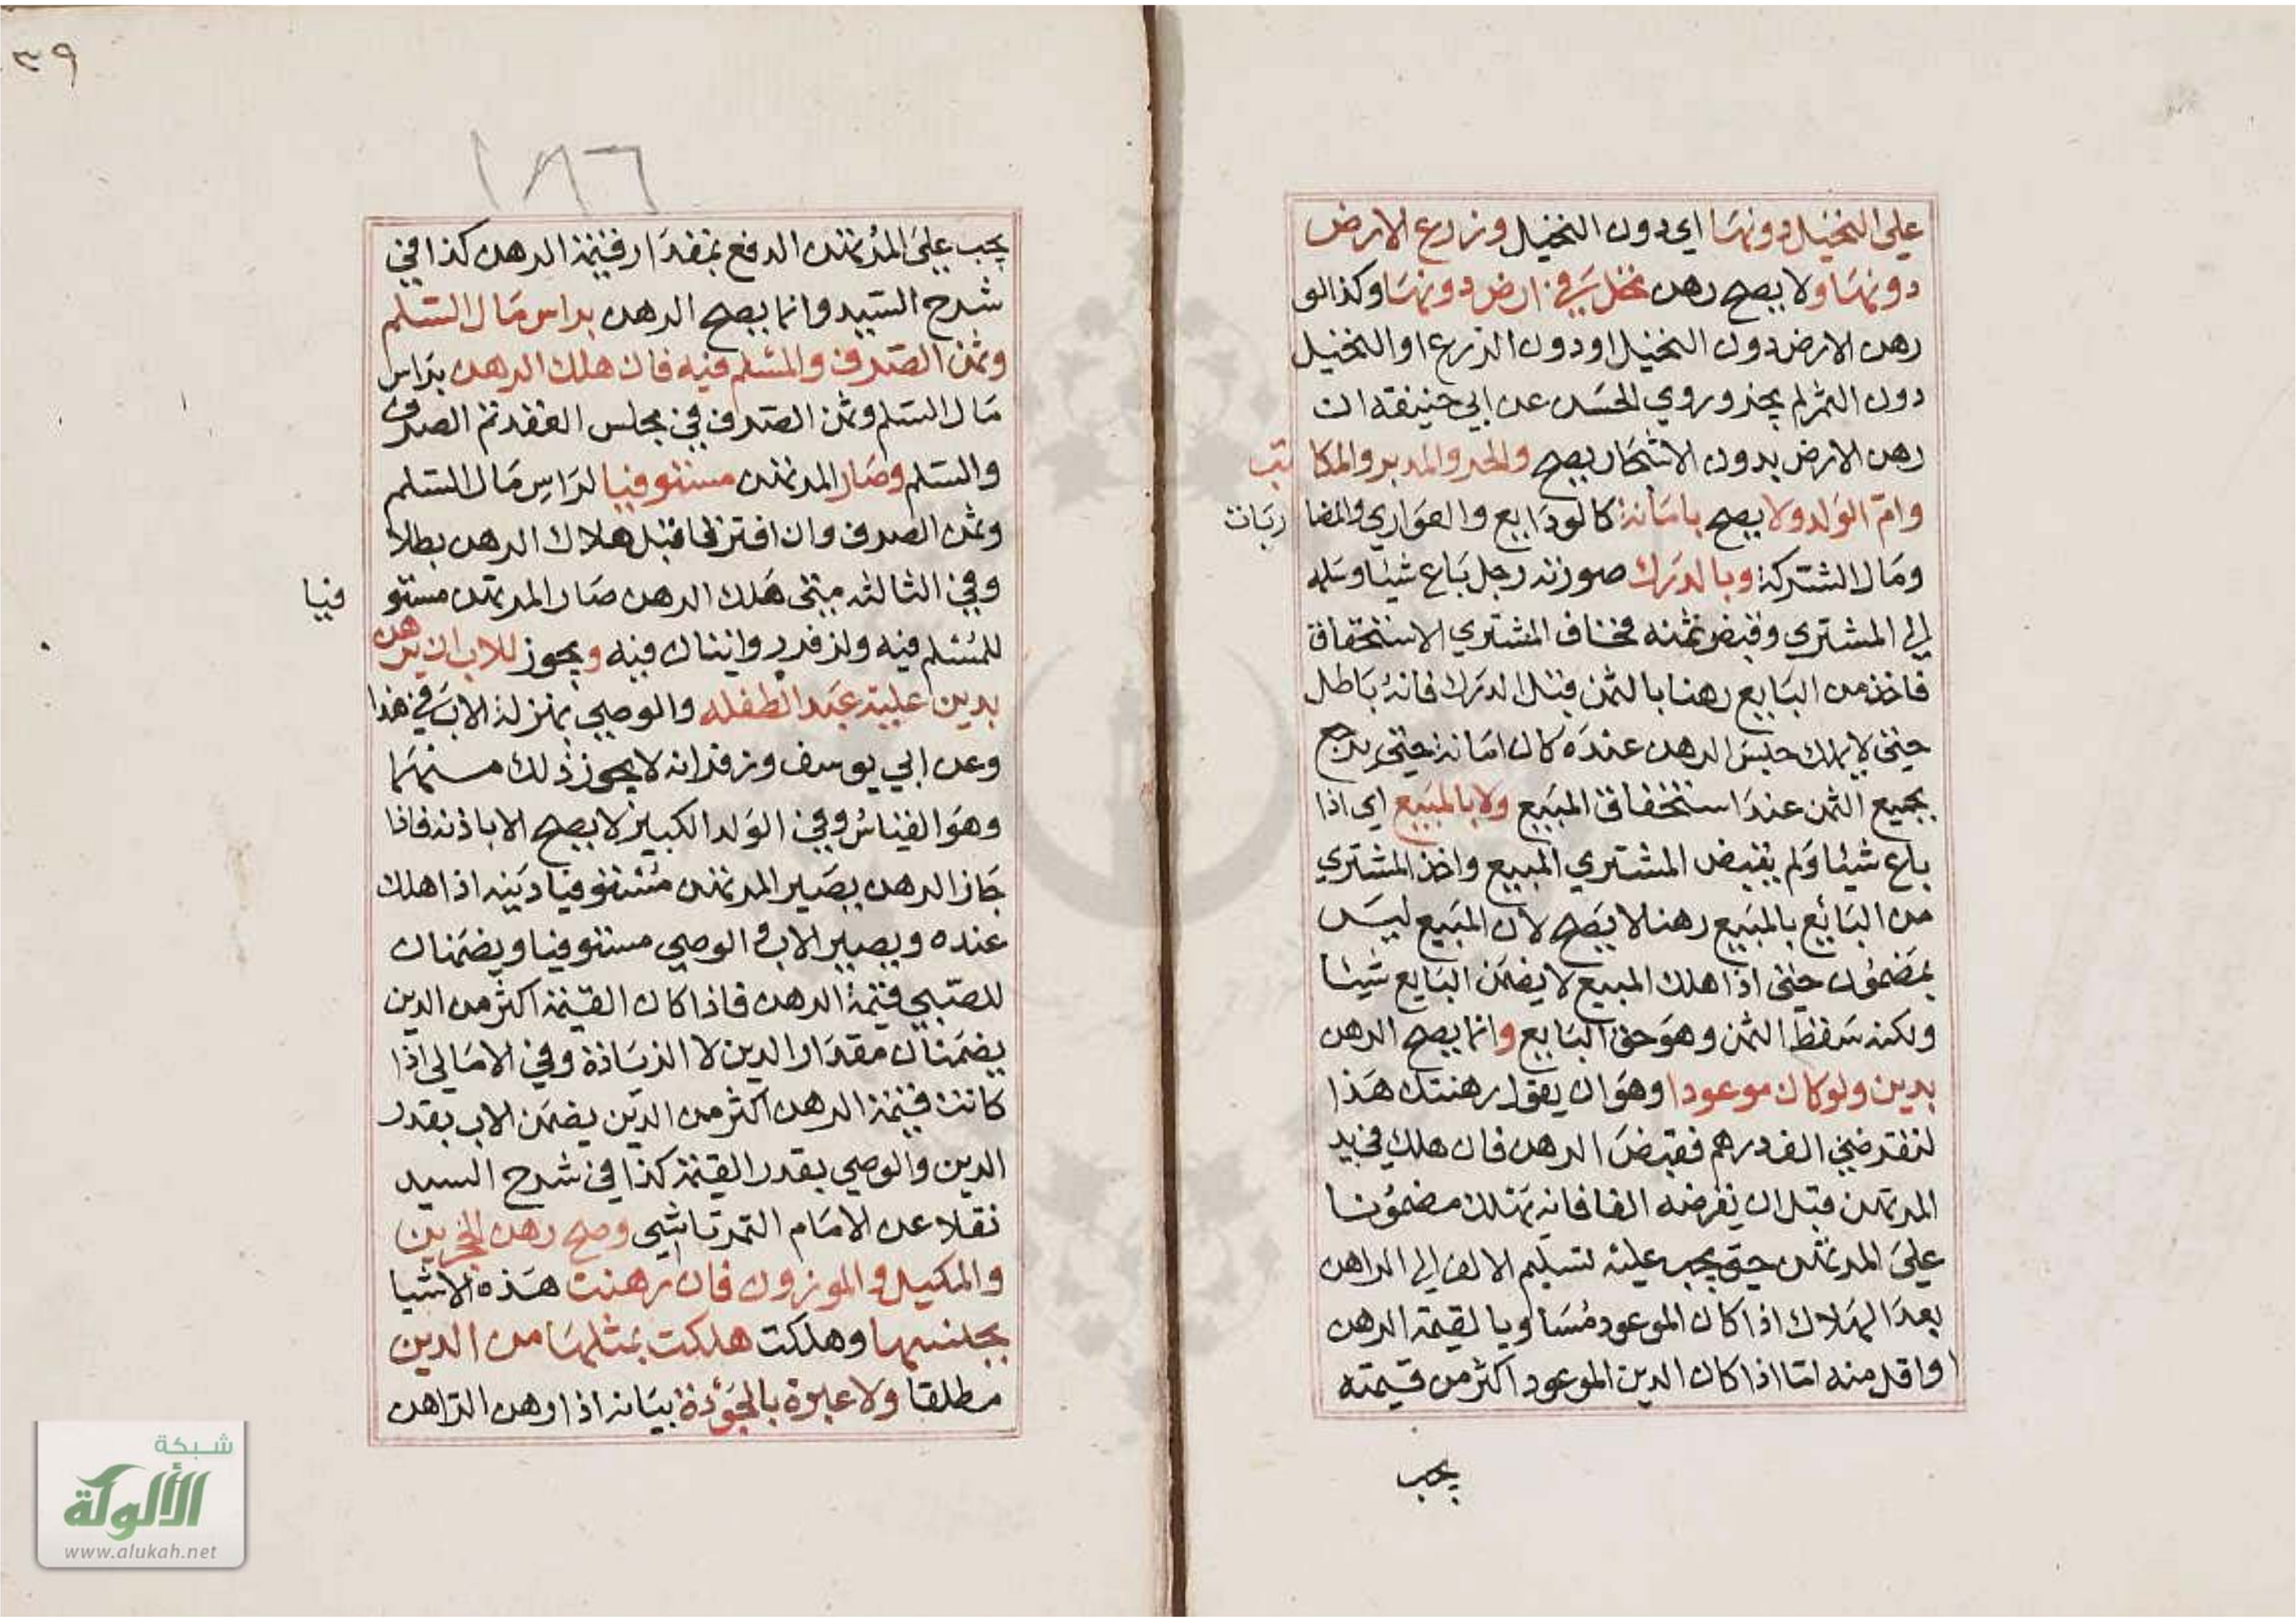 على النخيل دونها اي دون النخيل وزرع الارض
دونها ولا يصح رهن نخل في ارض دونها وكذا لو
رهن الارض دون النخيل او دون الزرع او النخيل
دون الثمر لم يجز وروي الحسن عن ابي حنيفة ان
رهن الارض بدون الاشجار يصح والحر والمدبر والمكاتب
وام الولد ولا يصح بامانة كالودايع والعواري والمضاربات
ومال الشركة وبالدرك صورته رجل باع شيئا وسلمه
الي المشتري وقبض ثمنه فخاف المشتري الاستحقاق
فاخذ من البايع رهنا بالثمن قبل الدرك فانه باطل
حتى لا يملك حبس الرهن عنده كان امانة حتى يرجع
بجميع الثمن عند استحقاق المبيع ولا بالمبيع اي اذا
باع شيئا ولم يقبض المشتري المبيع واخذ المشتري
من البائع بالمبيع رهنا لا يصح لان المبيع ليس
بمضمون حتى اذا هلك المبيع لا يضمن البايع شيئا
ولكنه سقط الثمن وهو حق البايع وانما يصح الرهن
بدين ولو كان موعودا وهو ان يقول رهنتك هذا
لتقرضني الف درهم فقبض الرهن فان هلك في يد
المرتهن قبل ان يقرضه الفا فانه يهلك مضمونا
على المرتهن حتى يجب عليه تسليم الالف الي الراهن
بعد الهلاك اذا كان الموعود مساويا لقيمة الرهن
او اقل منه اما اذا كان الدين الموعود اكثر من قيمته
يجب
٣٩
١٨٦
يجب على المرتهن الدفع بمقدار قيمة الرهن كذا في
شرح السيد وانما يصح الرهن براس مال السلم
وثمن الصرف والمسلم فيه فان هلك الرهن براس
مال السلم وثمن الصرف في مجلس العقد تم الصرف
والسلم وصار المرتهن مستوفيا لراس مال السلم
وثمن الصرف وان افترقا قبل هلاك الرهن بطلا
وفي الثالثه متى هلك الرهن صار المرتهن مستوفيا
للمسلم فيه ولزفر روايتان فيه ويجوز للاب ان يرهن
بدين عليه عبد الطفله والوصي بمنزلة الاب في هذا
وعن ابي يوسف وزفر انه لا يجوز ذلك منهما
وهو القياس وفي الولد الكبير لا يصح الا باذنه فاذا
جاز الرهن يصير المرتهن مستوفيا دينه اذا هلك
عنده ويصير الاب والوصي مستوفيا ويضمنان
للصبي قيمة الرهن فاذا كان القيمة اكثر من الدين
يضمنان مقدار الدين لا الزيادة وفي الامالي اذا
كانت قيمة الرهن اكثر من الدين يضمن الاب بقدر
الدين والوصي بقدر القيمة كذا في شرح السيد
نقلا عن الامام التمرتاشي وصح رهن الحجرين
والمكيل والموزون فان رهنت هذه الاشيا
بجنسها وهلكت هلكت بمثلها من الدين
مطلقا ولا عبرة بالجودة بيانه اذا رهن الراهن
شبكة
الألوكة
www.alukah.net